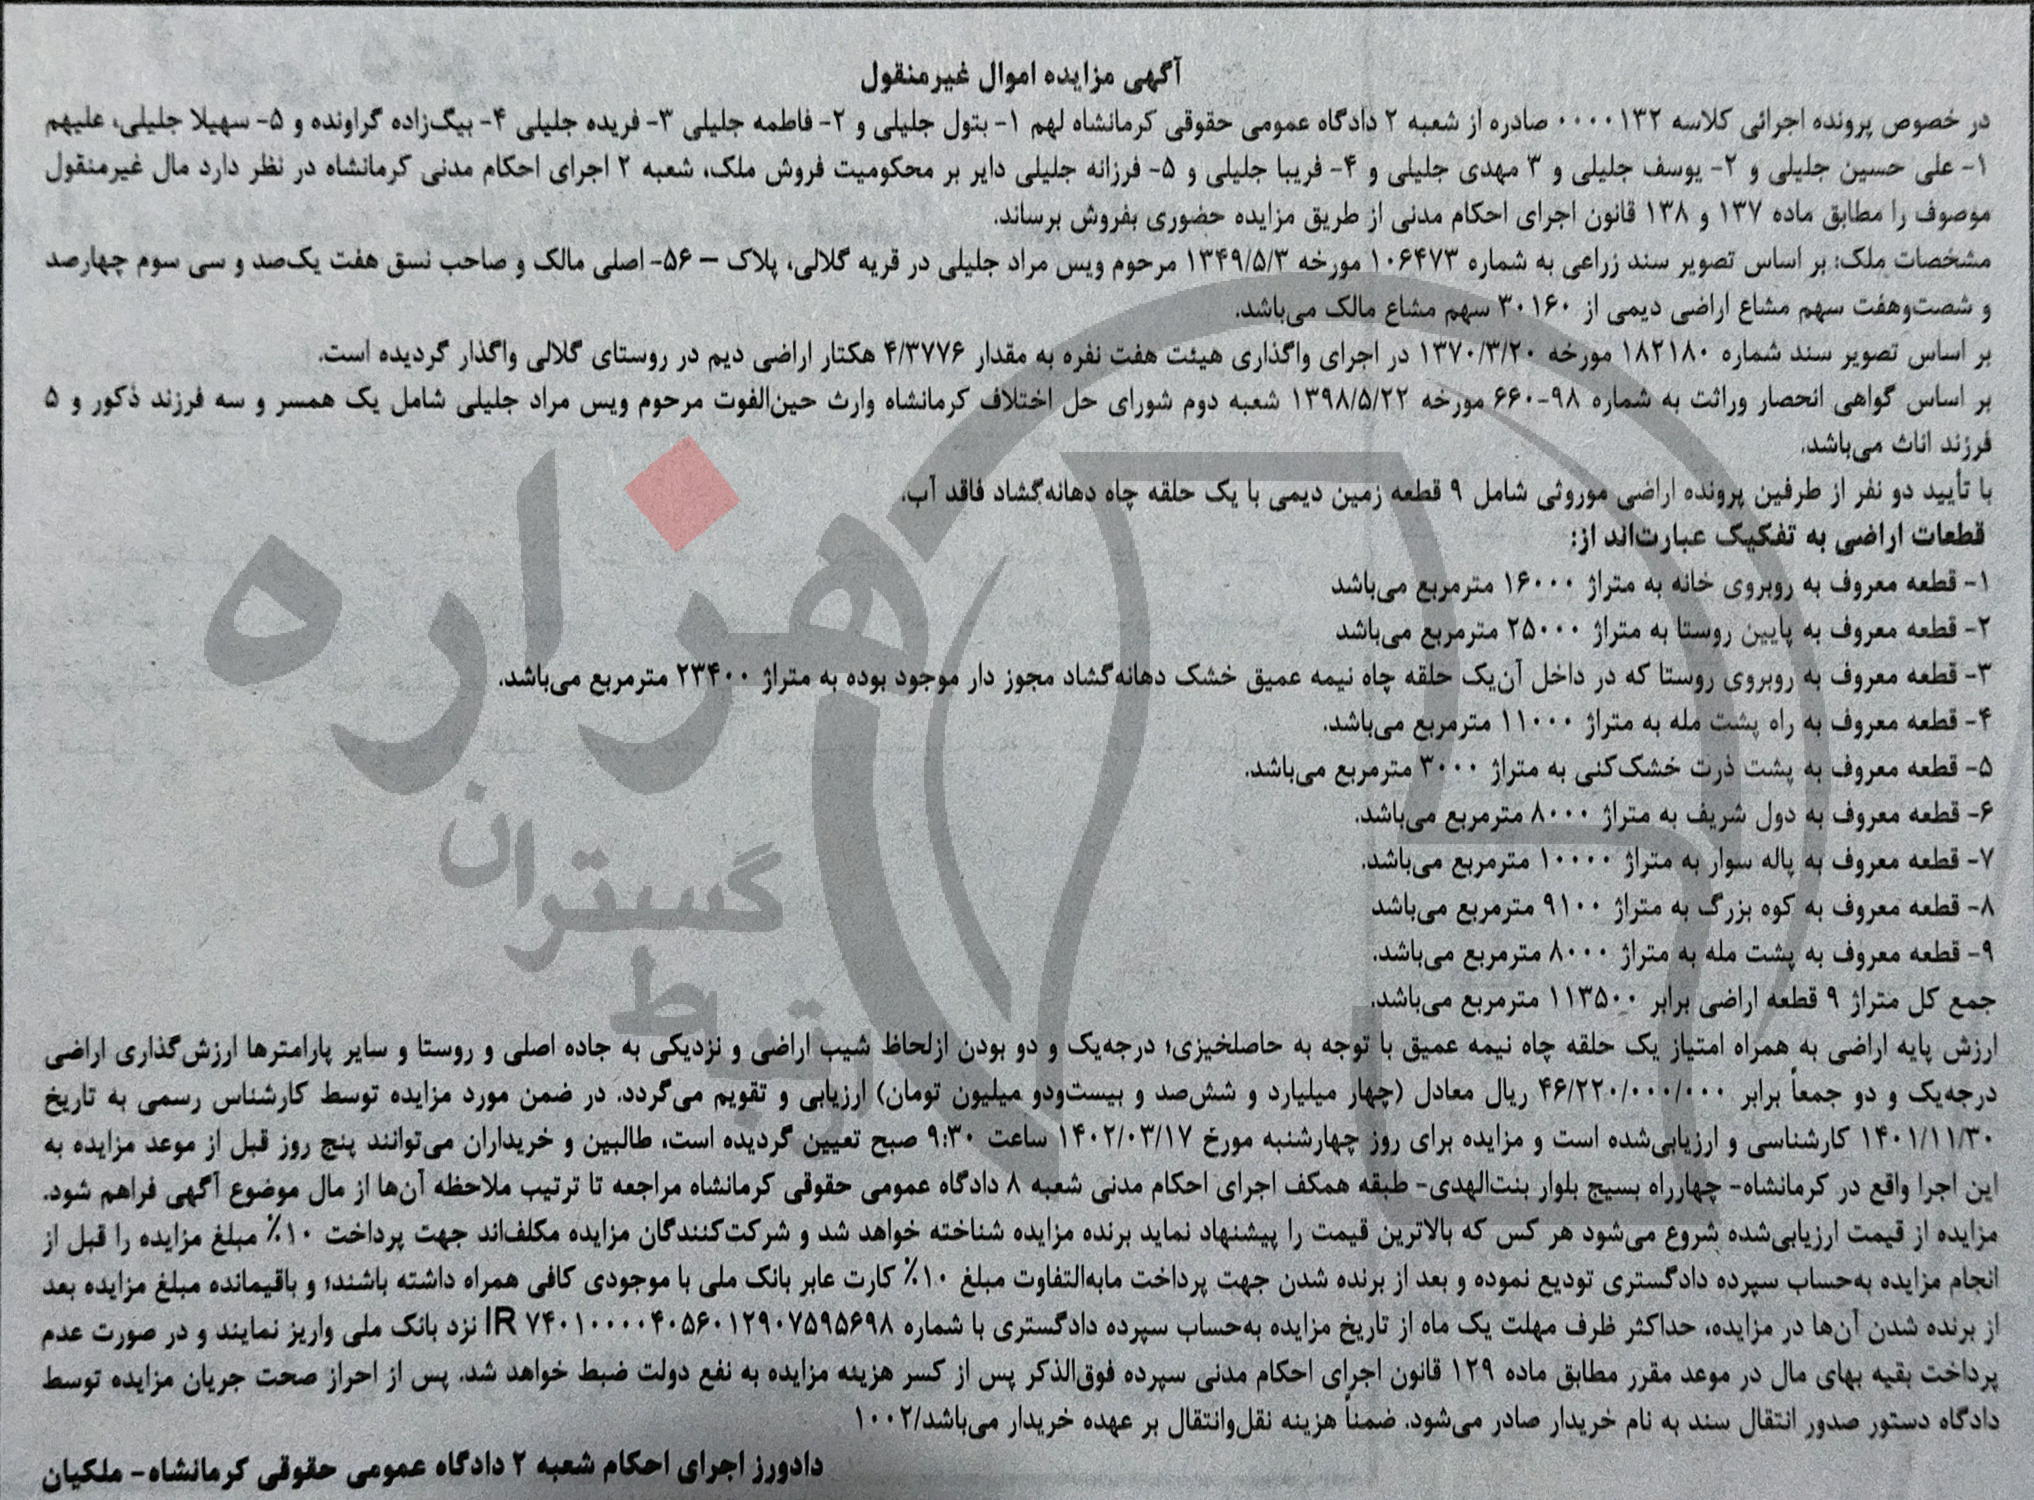 آگهی مزایده اموال غیرمنقول
در خصوص پرونده اجرائی کلاسه ۰۰۰۰۱۳۲ صادره از شعبه ۲ دادگاه عمومی حقوقی کرمانشاه لهم ۱- بتول جلیلی و ۲- فاطمه جلیلی ۳- فریده جلیلی ۴- بیگ‌زاده گراونده و ۵- سهیلا جلیلی، علیهم
۱- علی حسین جلیلی و ۲- یوسف جلیلی و ۳ مهدی جلیلی و ۴- فریبا جلیلی و ۵- فرزانه جلیلی دایر بر محکومیت فروش ملک، شعبه ۲ اجرای احکام مدنی کرمانشاه در نظر دارد مال غیرمنقول
موصوف را مطابق ماده ۱۳۷ و ۱۳۸ قانون اجرای احکام مدنی از طریق مزایده حضوری بفروش برساند.
مشخصات ملک: بر اساس تصویر سند زراعی به شماره ۱۰۶۴۷۳ مورخه ۱۳۴۹/۵/۳ مرحوم ویس مراد جلیلی در قریه گلالی، پلاک – ۵۶- اصلی مالک و صاحب نسق هفت یک‌صد و سی سوم چهارصد
و شصت‌وهفت سهم مشاع اراضی دیمی از ۳۰۱۶۰ سهم مشاع مالک می‌باشد.
بر اساس تصویر سند شماره ۱۸۲۱۸۰ مورخه ۱۳۷۰/۳/۲۰ در اجرای واگذاری هیئت هفت نفره به مقدار ۴/۳۷۷۶ هکتار اراضی دیم در روستای گلالی واگذار گردیده است.
بر اساس گواهی انحصار وراثت به شماره ۹۸-۶۶۰ مورخه ۱۳۹۸/۵/۲۲ شعبه دوم شورای حل اختلاف کرمانشاه وارث حین‌الفوت مرحوم ویس مراد جلیلی شامل یک همسر و سه فرزند ذکور و ۵
فرزند اناث می‌باشد.
با تأیید دو نفر از طرفین پرونده اراضی موروثی شامل ۹ قطعه زمین دیمی با یک حلقه چاه دهانه‌گشاد فاقد آب.
قطعات اراضی به تفکیک عبارت‌اند از:
۱- قطعه معروف به روبروی خانه به متراژ ۱۶۰۰۰ مترمربع می‌باشد
۲- قطعه معروف به پایین روستا به متراژ ۲۵۰۰۰ مترمربع می‌باشد
۳- قطعه معروف به روبروی روستا که در داخل آن‌یک حلقه چاه نیمه عمیق خشک دهانه‌گشاد مجوز دار موجود بوده به متراژ ۲۳۴۰۰ مترمربع می‌باشد.
۴- قطعه معروف به راه پشت مله به متراژ ۱۱۰۰۰ مترمربع می‌باشد.
۵- قطعه معروف به پشت ذرت خشک‌کنی به متراژ ۳۰۰۰ مترمربع می‌باشد.
۶- قطعه معروف به دول شریف به متراژ ۸۰۰۰ مترمربع می‌باشد.
۷- قطعه معروف به پاله سوار به متراژ ۱۰۰۰۰ مترمربع می‌باشد.
۸- قطعه معروف به کوه بزرگ به متراژ ۹۱۰۰ مترمربع می‌باشد
۹- قطعه معروف به پشت مله به متراژ ۸۰۰۰ مترمربع می‌باشد.
جمع کل متراژ ۹ قطعه اراضی برابر ۱۱۳۵۰۰ مترمربع می‌باشد.
ارزش پایه اراضی به همراه امتیاز یک حلقه چاه نیمه عمیق با توجه به حاصلخیزی؛ درجه‌یک و دو بودن ازلحاظ شیب اراضی و نزدیکی به جاده اصلی و روستا و سایر پارامترها ارزش‌گذاری اراضی
درجه‌یک و دو جمعاً برابر ۴۶/۲۲۰/۰۰۰/۰۰۰ ریال معادل (چهار میلیارد و شش‌صد و بیست‌ودو میلیون تومان) ارزیابی و تقویم می‌گردد. در ضمن مورد مزایده توسط کارشناس رسمی به تاریخ
۱۴۰۱/۱۱/۳۰ کارشناسی و ارزیابی‌شده است و مزایده برای روز چهارشنبه مورخ ۱۴۰۲/۰۳/۱۷ ساعت ۹:۳۰ صبح تعیین گردیده است، طالبین و خریداران می‌توانند پنج روز قبل از موعد مزایده به
این اجرا واقع در کرمانشاه- چهارراه بسیج بلوار بنت‌الهدی- طبقه همکف اجرای احکام مدنی شعبه ۸ دادگاه عمومی حقوقی کرمانشاه مراجعه تا ترتیب ملاحظه آن‌ها از مال موضوع آگهی فراهم شود.
مزایده از قیمت ارزیابی‌شده شروع می‌شود هر کس که بالاترین قیمت را پیشنهاد نماید برنده مزایده شناخته خواهد شد و شرکت‌کنندگان مزایده مکلف‌اند جهت پرداخت ۱۰٪ مبلغ مزایده را قبل از
انجام مزایده به‌حساب سپرده دادگستری تودیع نموده و بعد از برنده شدن جهت پرداخت مابه‌التفاوت مبلغ ۱۰٪ کارت عابر بانک ملی با موجودی کافی همراه داشته باشند؛ و باقیمانده مبلغ مزایده بعد
از برنده شدن آن‌ها در مزایده، حداکثر ظرف مهلت یک ماه از تاریخ مزایده به‌حساب سپرده دادگستری با شماره IR ۷۴۰۱۰۰۰۰۴۰۵۶۰۱۲۹۰۷۵۹۵۶۹۸ نزد بانک ملی واریز نمایند و در صورت عدم
پرداخت بقیه بهای مال در موعد مقرر مطابق ماده ۱۲۹ قانون اجرای احکام مدنی سپرده فوق‌الذکر پس از کسر هزینه مزایده به نفع دولت ضبط خواهد شد. پس از احراز صحت جریان مزایده توسط
دادگاه دستور صدور انتقال سند به نام خریدار صادر می‌شود. ضمناً هزینه نقل‌وانتقال بر عهده خریدار می‌باشد/۱۰۰۲
دادورز اجرای احکام شعبه ۲ دادگاه عمومی حقوقی کرمانشاه- ملکیان
هزاره
گستران